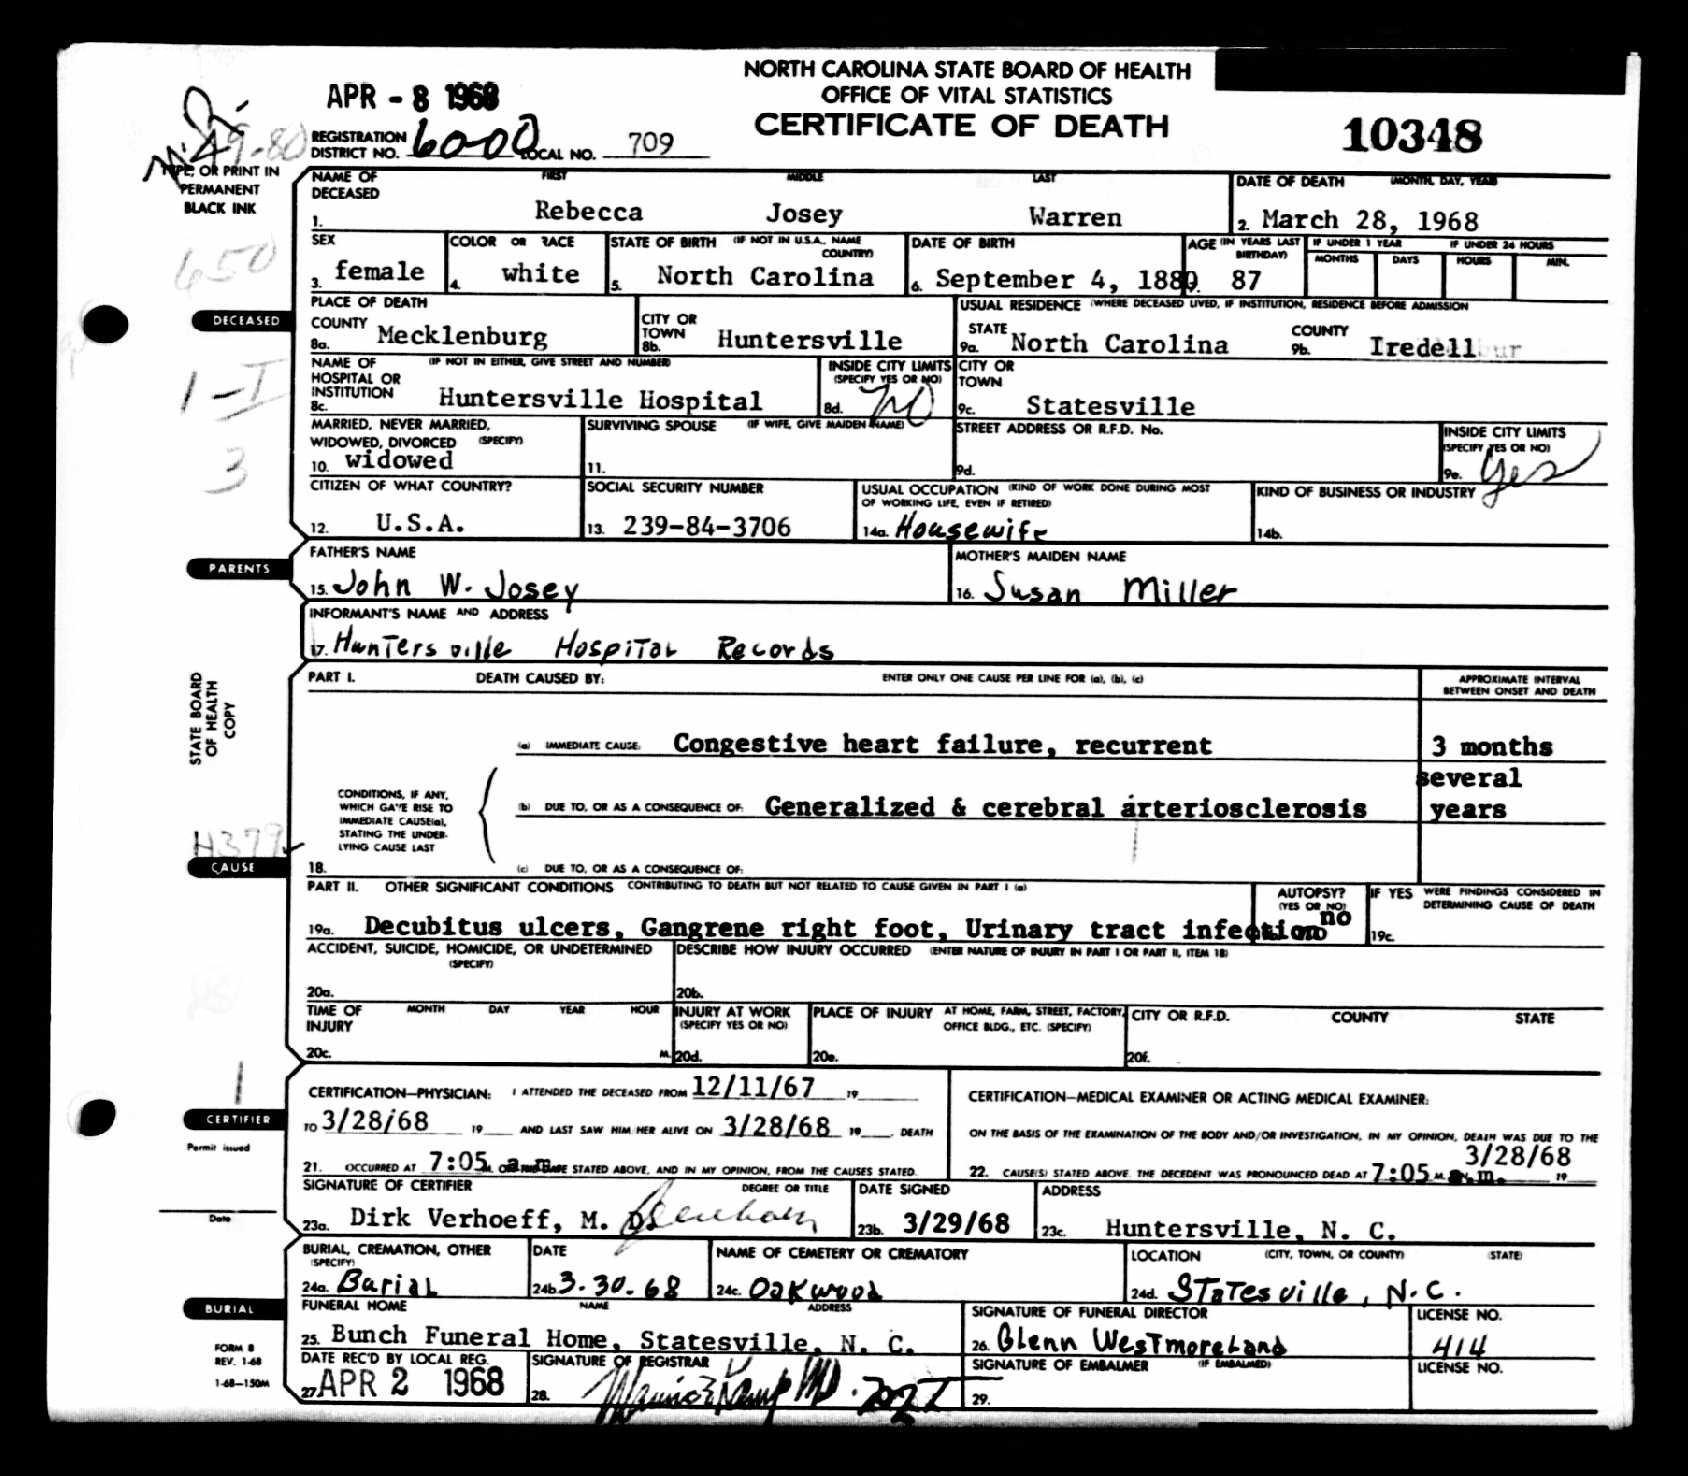 NORTH CAROLINA STATE BOARD OF HEALTH
OFFICE OF VITAL STATISTICS
CERTIFICATE OF DEATH
APR - 8 1968
10348
REGISTRATION DISTRICT NO. 60-00 LOCAL NO. 709
TYPE, OR PRINT IN
PERMANENT
BLACK INK
NAME OF DECEASED FIRST MIDDLE LAST DATE OF DEATH (MONTH, DAY, YEAR)
1. Rebecca Josey Warren 2. March 28, 1968
SEX COLOR OR RACE STATE OF BIRTH (IF NOT IN U.S.A., NAME COUNTRY) DATE OF BIRTH AGE (IN YEARS LAST BIRTHDAY) IF UNDER 1 YEAR IF UNDER 24 HOURS
MONTHS DAYS HOURS MIN.
3. female 4. white 5. North Carolina 6. September 4, 1880 7. 87
650
DECEASED
PLACE OF DEATH USUAL RESIDENCE (WHERE DECEASED LIVED, IF INSTITUTION, RESIDENCE BEFORE ADMISSION
COUNTY CITY OR TOWN STATE COUNTY
8a. Mecklenburg 8b. Huntersville 9a. North Carolina 9b. Iredell
NAME OF HOSPITAL OR INSTITUTION (IF NOT IN EITHER, GIVE STREET AND NUMBER) INSIDE CITY LIMITS (SPECIFY YES OR NO) CITY OR TOWN
8c. Huntersville Hospital 8d. no 9c. Statesville
1-I
3
MARRIED, NEVER MARRIED, WIDOWED, DIVORCED (SPECIFY) SURVIVING SPOUSE (IF WIFE, GIVE MAIDEN NAME) STREET ADDRESS OR R.F.D. No. INSIDE CITY LIMITS (SPECIFY YES OR NO)
10. widowed 11. 9d. 9e. yes
CITIZEN OF WHAT COUNTRY? SOCIAL SECURITY NUMBER USUAL OCCUPATION (KIND OF WORK DONE DURING MOST OF WORKING LIFE, EVEN IF RETIRED) KIND OF BUSINESS OR INDUSTRY
12. U.S.A. 13. 239-84-3706 14a. Housewife 14b.
PARENTS
FATHER'S NAME MOTHER'S MAIDEN NAME
15. John W. Josey 16. Susan Miller
INFORMANT'S NAME AND ADDRESS
17. Huntersville Hospital Records
STATE BOARD
OF HEALTH
COPY
PART I. DEATH CAUSED BY: ENTER ONLY ONE CAUSE PER LINE FOR (a), (b), (c) APPROXIMATE INTERVAL BETWEEN ONSET AND DEATH
(a) IMMEDIATE CAUSE: Congestive heart failure, recurrent 3 months
CONDITIONS, IF ANY,
WHICH GAVE RISE TO
IMMEDIATE CAUSE(a),
STATING THE UNDER-
LYING CAUSE LAST
(b) DUE TO, OR AS A CONSEQUENCE OF: Generalized & cerebral arteriosclerosis several years
H379
CAUSE
18. (c) DUE TO, OR AS A CONSEQUENCE OF:
PART II. OTHER SIGNIFICANT CONDITIONS CONTRIBUTING TO DEATH BUT NOT RELATED TO CAUSE GIVEN IN PART I (a) AUTOPSY? (YES OR NO) IF YES WERE FINDINGS CONSIDERED IN DETERMINING CAUSE OF DEATH
19a. Decubitus ulcers, Gangrene right foot, Urinary tract infection no 19c.
ACCIDENT, SUICIDE, HOMICIDE, OR UNDETERMINED (SPECIFY) DESCRIBE HOW INJURY OCCURRED (ENTER NATURE OF INJURY IN PART I OR PART II, ITEM 18)
20a. 20b.
TIME OF INJURY MONTH DAY YEAR HOUR INJURY AT WORK (SPECIFY YES OR NO) PLACE OF INJURY AT HOME, FARM, STREET, FACTORY, OFFICE BLDG., ETC. (SPECIFY) CITY OR R.F.D. COUNTY STATE
20c. M. 20d. 20e. 20f.
CERTIFICATION—PHYSICIAN: I ATTENDED THE DECEASED FROM 12/11/67 19
TO 3/28/68 19 AND LAST SAW HIM/HER ALIVE ON 3/28/68 19 DEATH
21. OCCURRED AT 7:05 a.m. M. ON THE DATE STATED ABOVE, AND IN MY OPINION, FROM THE CAUSES STATED.
CERTIFICATION—MEDICAL EXAMINER OR ACTING MEDICAL EXAMINER:
ON THE BASIS OF THE EXAMINATION OF THE BODY AND/OR INVESTIGATION, IN MY OPINION, DEATH WAS DUE TO THE
22. CAUSE(S) STATED ABOVE. THE DECEDENT WAS PRONOUNCED DEAD AT 7:05 M. a.m. 3/28/68 19
CERTIFIER
Permit issued
Date
SIGNATURE OF CERTIFIER DEGREE OR TITLE DATE SIGNED ADDRESS
23a. Dirk Verhoeff, M. D. 23b. 3/29/68 23c. Huntersville, N. C.
BURIAL, CREMATION, OTHER (SPECIFY) DATE NAME OF CEMETERY OR CREMATORY LOCATION (CITY, TOWN, OR COUNTY) (STATE)
24a. Burial 24b. 3.30.68 24c. Oakwood 24d. Statesville, N.C.
BURIAL
FUNERAL HOME NAME ADDRESS SIGNATURE OF FUNERAL DIRECTOR LICENSE NO.
25. Bunch Funeral Home, Statesville, N. C. 26. Glenn Westmoreland 414
FORM 8
REV. 1-68
1-68—150M
DATE REC'D BY LOCAL REG. SIGNATURE OF REGISTRAR SIGNATURE OF EMBALMER (IF EMBALMED) LICENSE NO.
27. APR 2 1968 28. 29.